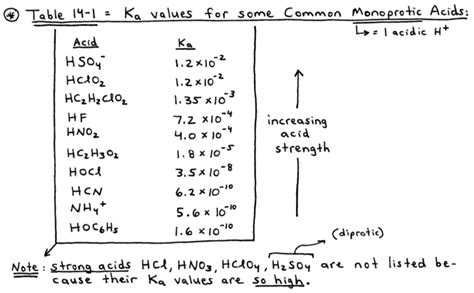 ⊛ Table 14-1 = Ka values for some Common Monoprotic Acids:
↳ = 1 acidic H⁺
Acid Ka
HSO₄⁻ 1.2 × 10⁻²
HClO₂ 1.2 × 10⁻²
HC₂H₂ClO₂ 1.35 × 10⁻³
HF 7.2 × 10⁻⁴
HNO₂ 4.0 × 10⁻⁴
HC₂H₃O₂ 1.8 × 10⁻⁵
HOCl 3.5 × 10⁻⁸
HCN 6.2 × 10⁻¹⁰
NH₄⁺ 5.6 × 10⁻¹⁰
HOC₆H₅ 1.6 × 10⁻¹⁰
increasing
acid
strength
(diprotic)
Note: strong acids HCl, HNO₃, HClO₄, H₂SO₄ are not listed be-
cause their Ka values are so high.